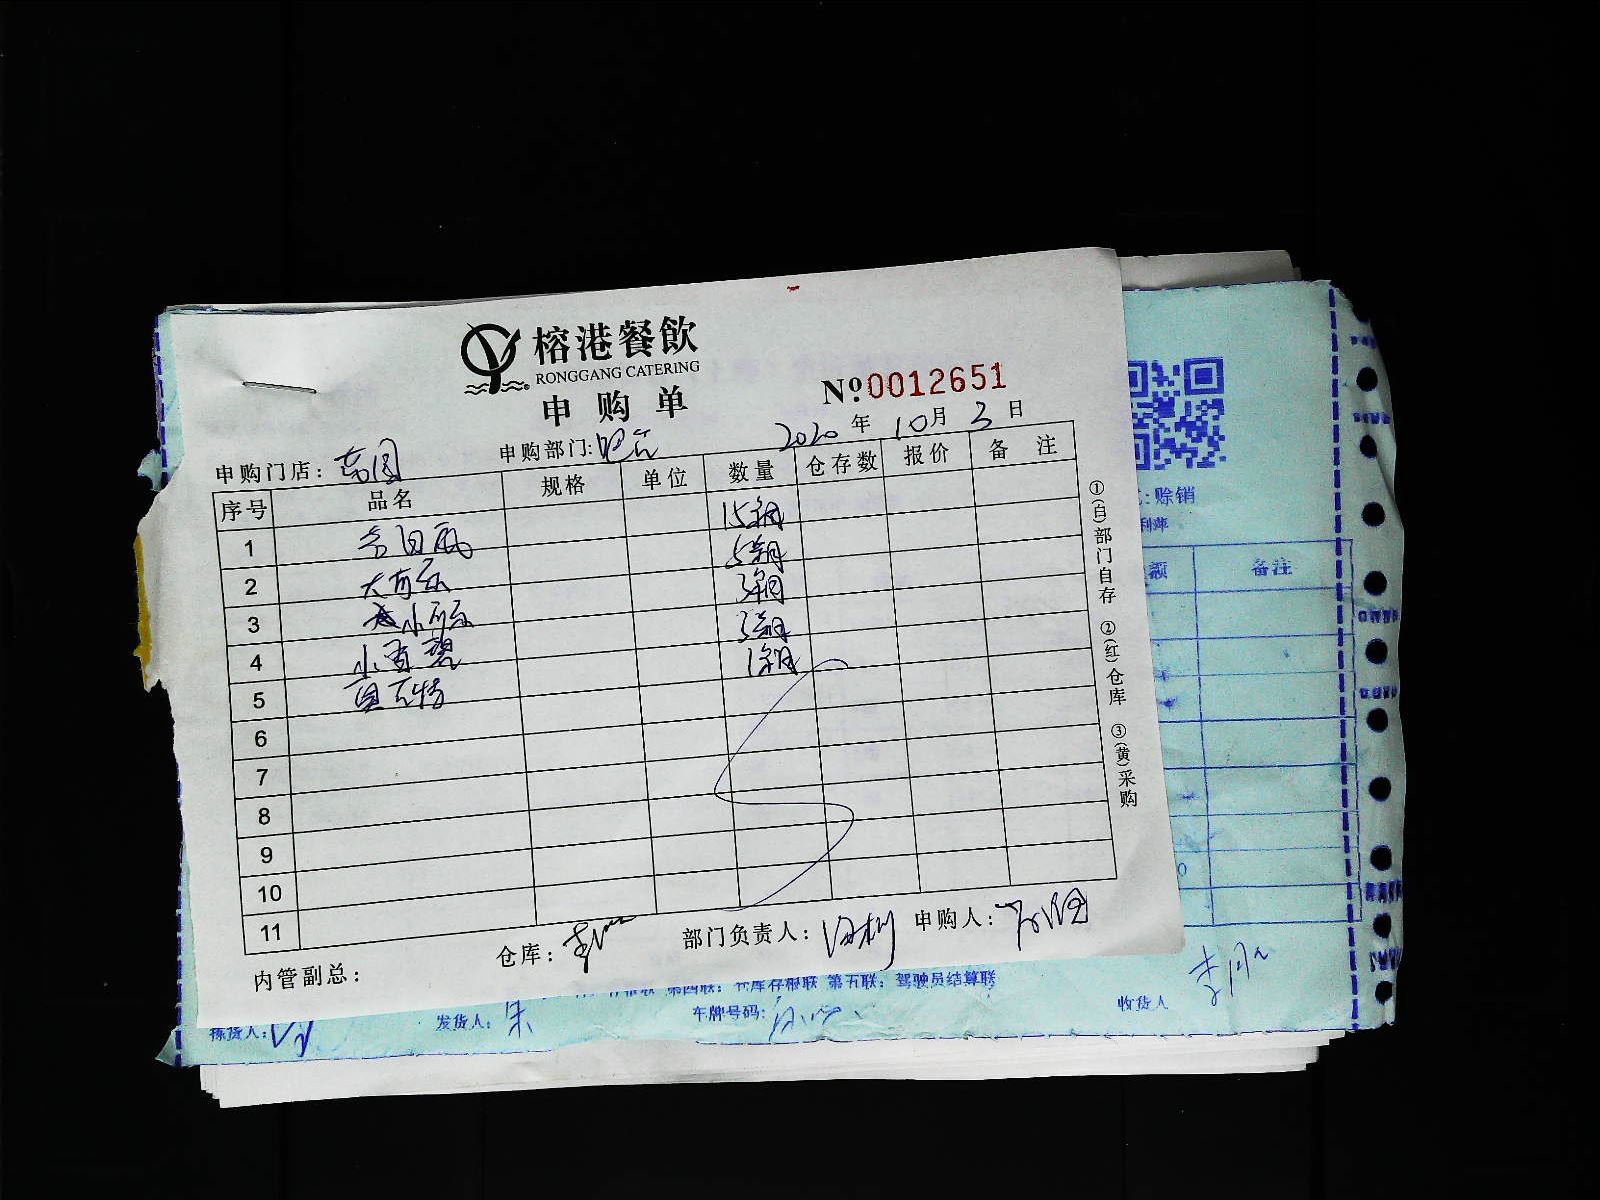 榕港餐飲
RONGGANG CATERING
申购单
№0012651
2020年10月3日
申购门店：
申购部门:吧台
序号 品名 规格 单位 数量 仓存数 报价 备注
1 15箱
2 大可乐 5箱
3 小可乐 3箱
4 小雪碧 3箱
5 百威特 1箱
6
7
8
9
10
11
内管副总：
仓库：
部门负责人：
申购人：
①(白)部门自存 ②(红)仓库 ③(黄)采购
:赊销
利萍
额 备注
第四联：仓库存根联 第五联：驾驶员结算联
拣货人:
发货人: 朱
车牌号码:
收货人